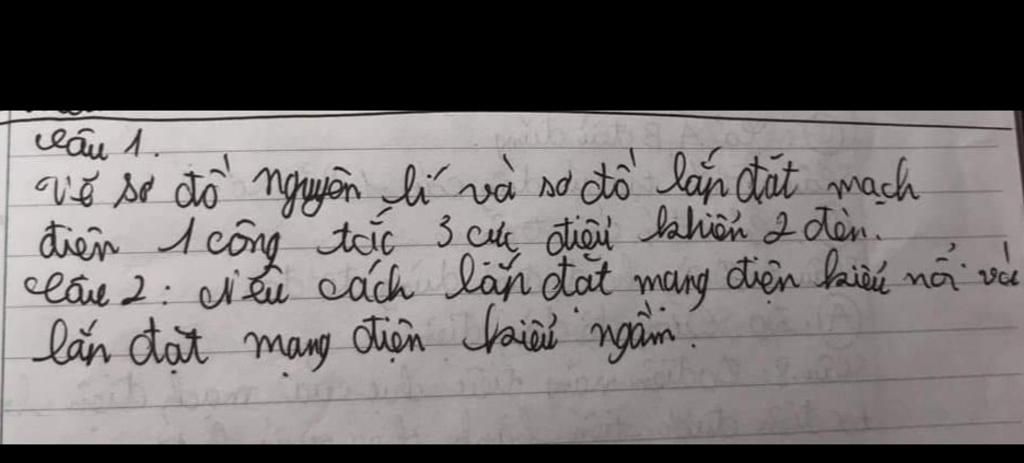 Câu 1.
Vẽ sơ đồ nguyên lí và sơ đồ lắp đặt mạch
điện 1 công tắc 3 cực điều khiển 2 đèn.
Câu 2: Nêu cách lắp đặt mạng điện kiểu nổi và
lắp đặt mạng điện kiểu ngầm.